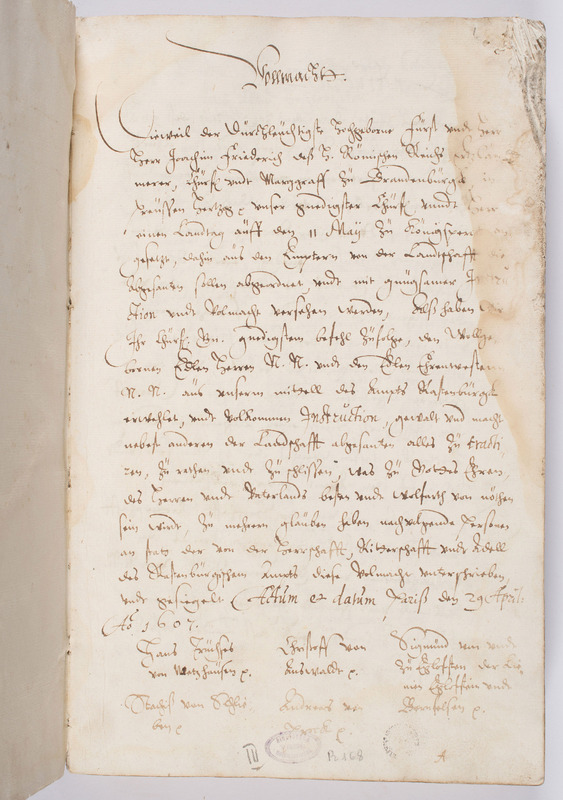 Vollmacht.
Dieweil der Durchleuchtigste Hochgeborne Fürst vndt Herr
Herr Joachim Friederich deß H. Römischen Reichs
merer, Churf. vndt Marggraff zu Brandenburgk in
Preussen Hertzog p. vnser gnedigster Churf. vnndt Herr
einen Landtag auff den 11 May zu Königsperg
gesetzt, dahin aus den Emptern von der Landtschafft die
Abgesanten sollen abgeordnet, vndt mit gnugsamer Instru
ction vndt Volmacht versehen werden, Alß haben wir
Ihr Churf. Gn. gnedigstem befehl zufolge, den Wollge
bornen Edlen Herren N. N. vndt den Edlen Ehrenuesten
N. N. aus vnserm mittell des Ampts Rastenburgk
erwehlet, vndt volkommen Instruction, gewalt vnd macht
nebest anderen der Landschafft abgesanten alles zu tracti
ren, zu rathen vndt zu schlissen, was zu Gottes Ehren,
des Herren vndt Vaterlands besten vndt Wolfarth von nöhten
sein wirdt, zu mehrern glauben haben nachvolgende Personen
an statt der von der Herrschafft, Ritterschafft vndt Adell
des Rastenburgischen Ampts diese Volmacht vnterschrieben
vndt gesiegelt. Actum et datum den 29 April:
Ao. 1607.
Hans Truchses
von Wetzhausen p.
Christoff von
Auswaldt p.
Sigmund von vndt
zu Egloffstein der
Egloffstein vndt
Stachs von Schlie
ben p
Andreas von
p.
III
Pa 168
A